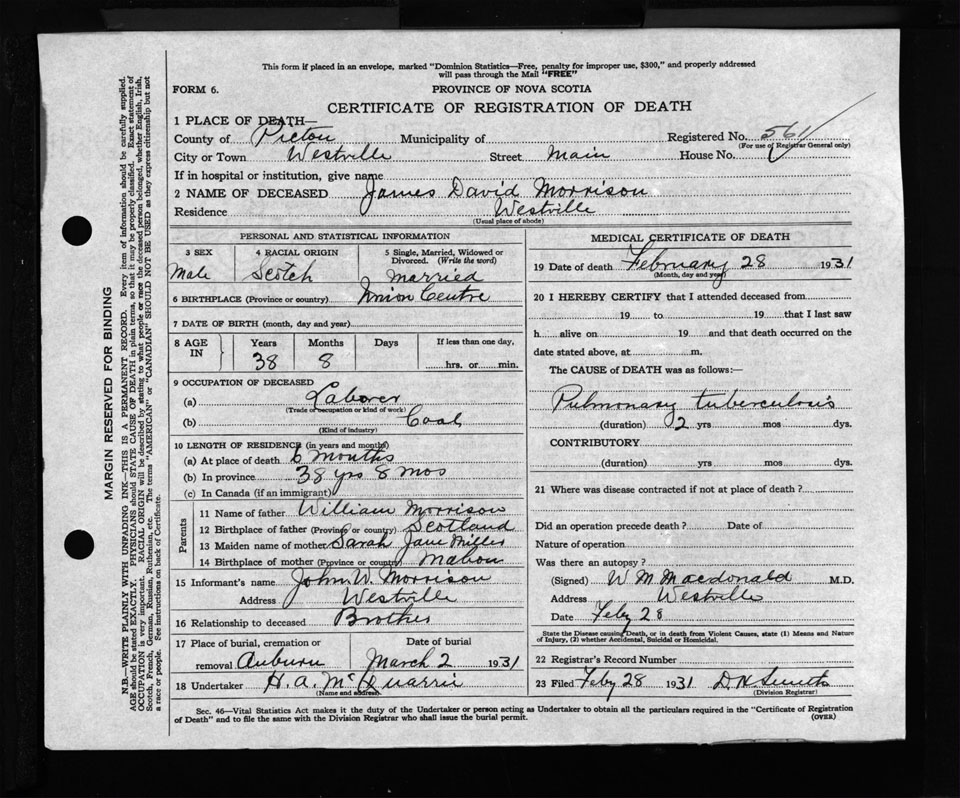 This form if placed in an envelope, marked "Dominion Statistics—Free, penalty for improper use, $300," and properly addressed
will pass through the Mail "FREE"
FORM 6. PROVINCE OF NOVA SCOTIA
CERTIFICATE OF REGISTRATION OF DEATH
1 PLACE OF DEATH—
County of Pictou Municipality of Registered No. 561
(For use of Registrar General only)
City or Town Westville Street Main House No.
If in hospital or institution, give name
2 NAME OF DECEASED James David Morrison
Residence Westville
(Usual place of abode)
PERSONAL AND STATISTICAL INFORMATION
3 SEX 4 RACIAL ORIGIN 5 Single, Married, Widowed or
Divorced. (Write the word)
Male Scotch Married
6 BIRTHPLACE (Province or country) Union Centre
7 DATE OF BIRTH (month, day and year)
8 AGE IN Years Months Days If less than one day,
38 8 hrs. or min.
9 OCCUPATION OF DECEASED
(a) Laborer
(Trade or occupation or kind of work)
(b) Coal
(Kind of industry)
10 LENGTH OF RESIDENCE (in years and months)
(a) At place of death 6 months
(b) In province 38 yrs 8 mos
(c) In Canada (if an immigrant)
Parents
11 Name of father William Morrison
12 Birthplace of father (Province or country) Scotland
13 Maiden name of mother Sarah Jane Miller
14 Birthplace of mother (Province or country) Mabou
15 Informant's name John W. Morrison
Address Westville
16 Relationship to deceased Brother
17 Place of burial, cremation or Date of burial
removal Auburn March 2 1931
18 Undertaker H. A. McQuarrie
(Name and address)
MEDICAL CERTIFICATE OF DEATH
19 Date of death February 28 1931
(Month, day and year)
20 I HEREBY CERTIFY that I attended deceased from
19 to 19 that I last saw
h alive on 19 and that death occurred on the
date stated above, at m.
The CAUSE of DEATH was as follows:—
Pulmonary tuberculosis
(duration) 2 yrs mos dys.
CONTRIBUTORY
(duration) yrs mos dys.
21 Where was disease contracted if not at place of death?
Did an operation precede death? Date of
Nature of operation
Was there an autopsy?
(Signed) W M Macdonald M.D.
Address Westville
Date Feby 28
State the Disease causing Death, or in death from Violent Causes, state (1) Means and Nature
of Injury, (2) whether Accidental, Suicidal or Homicidal.
22 Registrar's Record Number
23 Filed Feby 28 1931 D. H. Smith
(Division Registrar)
Sec. 46—Vital Statistics Act makes it the duty of the Undertaker or person acting as Undertaker to obtain all the particulars required in the "Certificate of Registration
of Death" and to file the same with the Division Registrar who shall issue the burial permit. (OVER)
MARGIN RESERVED FOR BINDING
N.B.—WRITE PLAINLY WITH UNFADING INK—THIS IS A PERMANENT RECORD. Every item of information should be carefully supplied.
AGE should be stated EXACTLY. PHYSICIANS should STATE CAUSE OF DEATH in plain terms, so that it may be properly classified. Exact statement of
OCCUPATION is very important. RACIAL ORIGIN will be described by stating to what people or race the deceased person belonged, whether English, Irish,
Scotch, French, German, Russian, Ruthenian, etc. The terms "AMERICAN" or "CANADIAN" SHOULD NOT BE USED as they express citizenship but not
a race or people. See instructions on back of Certificate.